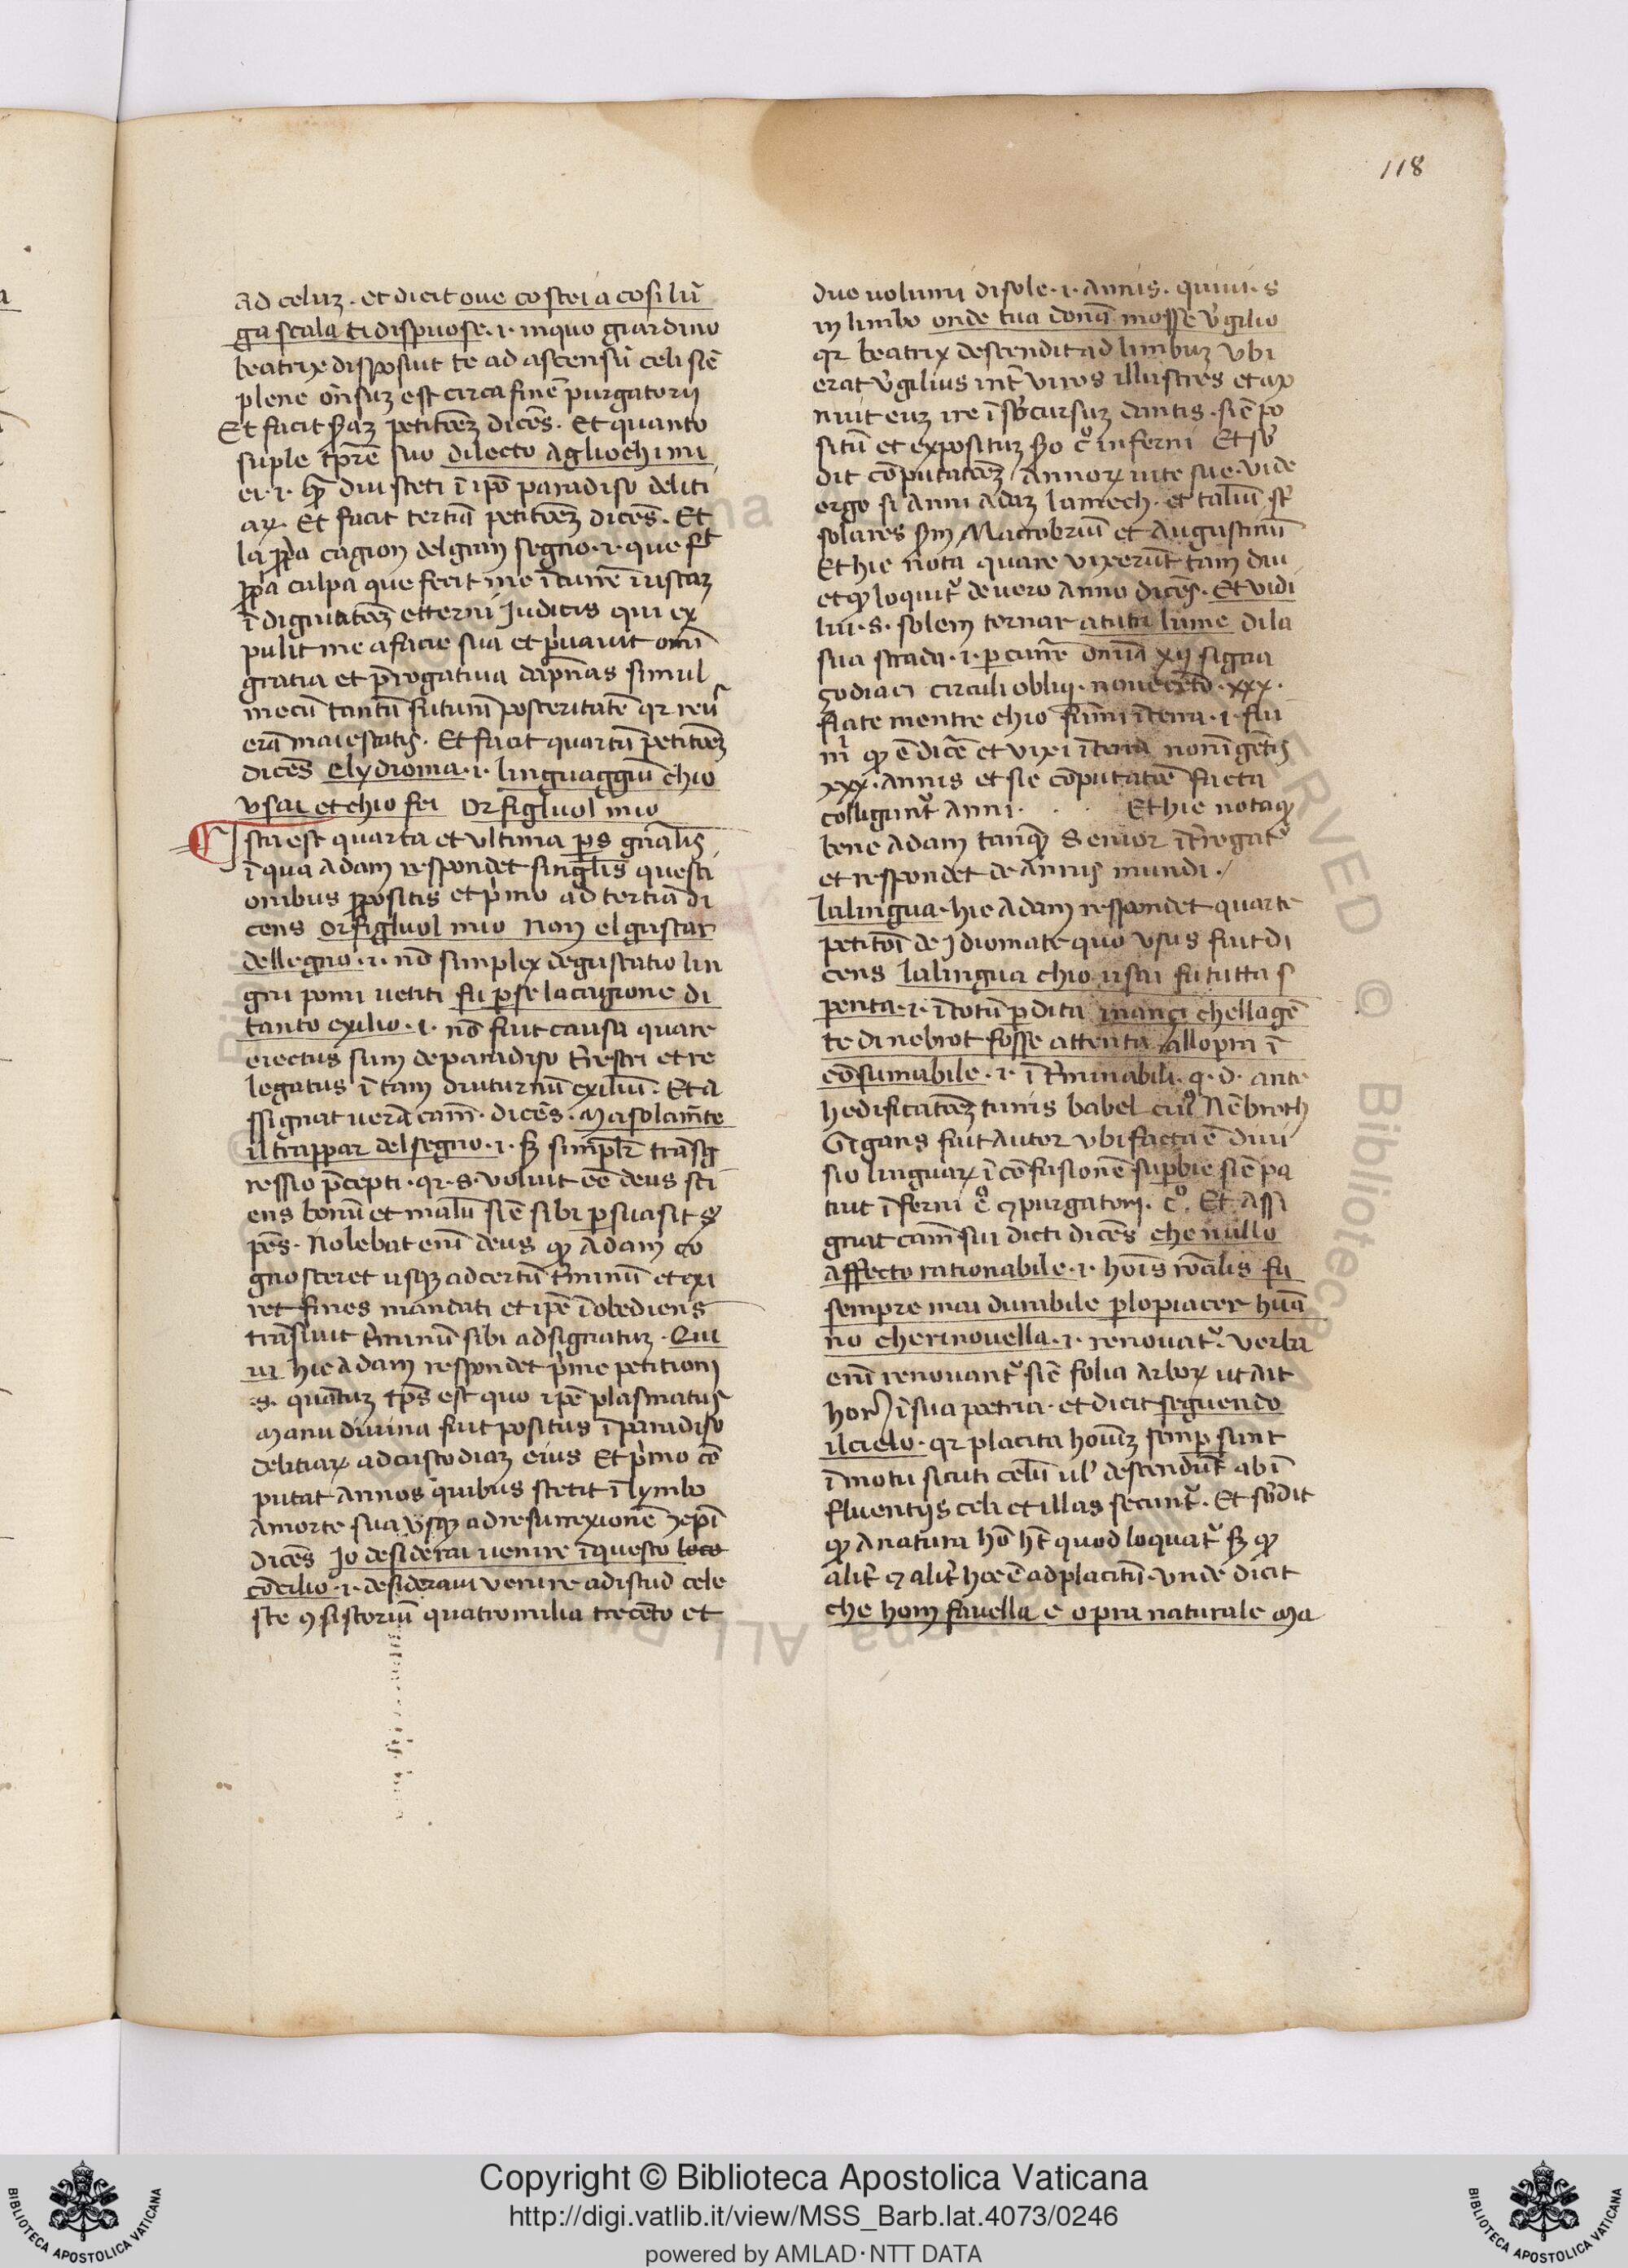 118
ad celuz. et dicit oue costei a cosi lū
ga scala ti dispuose .i. in quo giardino
beatrixe disposuit te ad ascensū celi sic̄
plene oñsuz est circa finē purgatorii
Et facit s̄daz petitōēz dicēs. Et quanto
suple tp̄re suo dilecto agliochi mi
ei .i. diu steti ī ip̄o paradiso deliti
aꝝ. Et facit tertiā petitōēz dicēs. Et
la ꝓpa cagion del gran segno .i. que ft
ꝓpa culpa que fecit me īcurrē iustaz
īdignatōēz etterni Judicis qui ex
pulit me a facie sua et p̄uauit omī
gratia et p̄rogatiua dāpnās simul
mecū tantā futurā posteritatē qr
maiestatis. Et facit quartā petitōēz
dicēs elydioma .i. linguaggiū chio
vsai et chio fei Or figluol mio
¶ sta est quarta et vltima ps gn̄alis
ī qua adam respondet singlis questi
onibus ꝓpositis et p̄mo ad tertiā di
cens or figluol mio non el gustar
del legno .i. nō simplex degustatio lin
gni pomi uetiti fu per se la cagione di
tanto exilio .i. nō fuit causa quare
eiectus sum de paradiso t̄restri et re
legatus ī tam diuturnū exiliū. Et a
ssignat uerā cām̄ dicēs. ma solam̄te
il trappar del segno .i. sz simplr̄ trāsg
ressio p̄cepti. qr .s. voluit eē deus sci
ens bonū et malū sic̄ sibi persuasit s̄
pēs. Nolebat enī deus qꝫ adam co
gnosceret usqꝫ ad certū t̄minū et exi
ret fines mandati et ip̄e īobediens
trāsiuit t̄minū sibi adsignatuz. Qui
ui hic adam respondet p̄me petitioni
.s. quātuz tp̄s est quo ip̄e plasmatus
manu diuina fuit positus ī paradiso
delitiaꝝ ad custodiaz eius Et p̄mo cō
putat annos quibus stetit ī lymbo
a morte sua vsqꝫ ad resurrexionē xp̄i
dicēs Jo desiderai uenire ī questo loco
cōcilio .i. desideraui venire ad istud cele
ste ꝯsistoriū quatro milia trecēto et
due volumi di sole .i. annis. quiui .s
in limbo onde tua donā mosse v̄gilio
qr beatrix descendit ad limbuz vbi
erat v̄gilius int̄ viros illustres et
nuit euz ire ī sb̄cursuz dantis. sic̄ po
situ et expositum s̄do c° inferni Et sb̄
dit cōputatōēz annoꝝ uite sue. vide
ergo si anni adaz lamech. et taliū st̄
solares s̄m Macrobriū et Augustinū
Et hic nota quare vixerūt tam diu
et qꝫ loquit̄ de uero anno dicēs. Et vidi
lui .s. solem tornar a tuta lume dila
sua strada .i. percurrē omīa xij signa
zodiaci circuli obliq. nouecēto. xxx.
fiate mentre chio fumi ī terra .i. fui
mi qꝫ ē dicē et vixi ī terra nonigētis
xxx. annis et sic cōputatōē facta
colligunt̄ anni . . Et hic nota qꝫ
bene adam tanqꝫ Senior īt̄rogat̄
et respondet de annis mundi.
La lingua. hic adam respondet quarte
petitōī de Jdiomate quo vsus fuit di
cens la lingua chio usai fu tutta s
penta .i. ī totū perdita inanci che lla gē
te di nebrot fosse attenta all opra ī
cōsumabile .i. īt̄minabili. q. d. ante
hedificatōēz turris babel cui° Nēbroth
Gigans fuit autor vbi facta ē diui
sio linguaꝝ ī cōfusionē superbie sic̄ pa
tuit īferni c° ꝯ purgatorij. c°. Et assi
gnat cām sui dicti dicēs che nullo
affecto rationabile .i. hoīs rōalis fu
sempre mai durabile per lo piacer hum̄a
no che rinouella .i. renouat̄. verba
enī renouant̄ sic̄ folia arboꝝ ut ait
hor̄ ī sua poetria. et dicit seguendo
il cielo. qr placita hoīuz semp sunt
ī motu sicuti celū ul descendūt ab ī
fluentijs celi et illas secunt̄. Et sb̄dit
qꝫ a natura hō ht quod loquat̄ sz qꝫ
alit̄ ꝯ alit̄ hoc ē ad placitū. vnde dicit
che hom fauella e opra naturale ma
Copyright © Biblioteca Apostolica Vaticana
http://digi.vatlib.it/view/MSS_Barb.lat.4073/0246
powered by AMLAD·NTT DATA
BIBLIOTECA APOSTOLICA VATICANA
BIBLIOTECA APOSTOLICA VATICANA